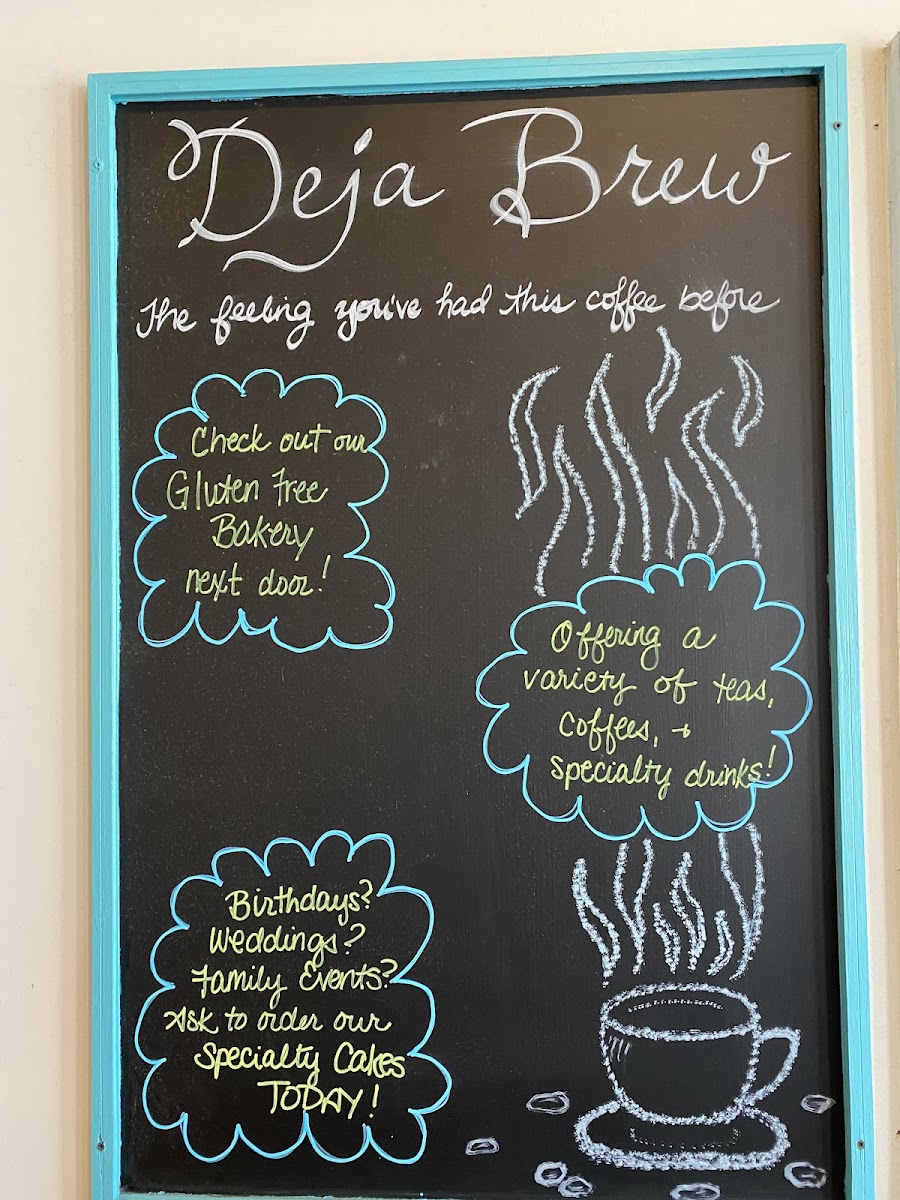 Deja Brew
The feeling you've had this coffee before
Check out our
Gluten Free
Bakery
next door!
Offering a
variety of teas,
coffees, +
specialty drinks!
Birthdays?
Weddings?
Family Events?
Ask to order our
Specialty Cakes
TODAY!